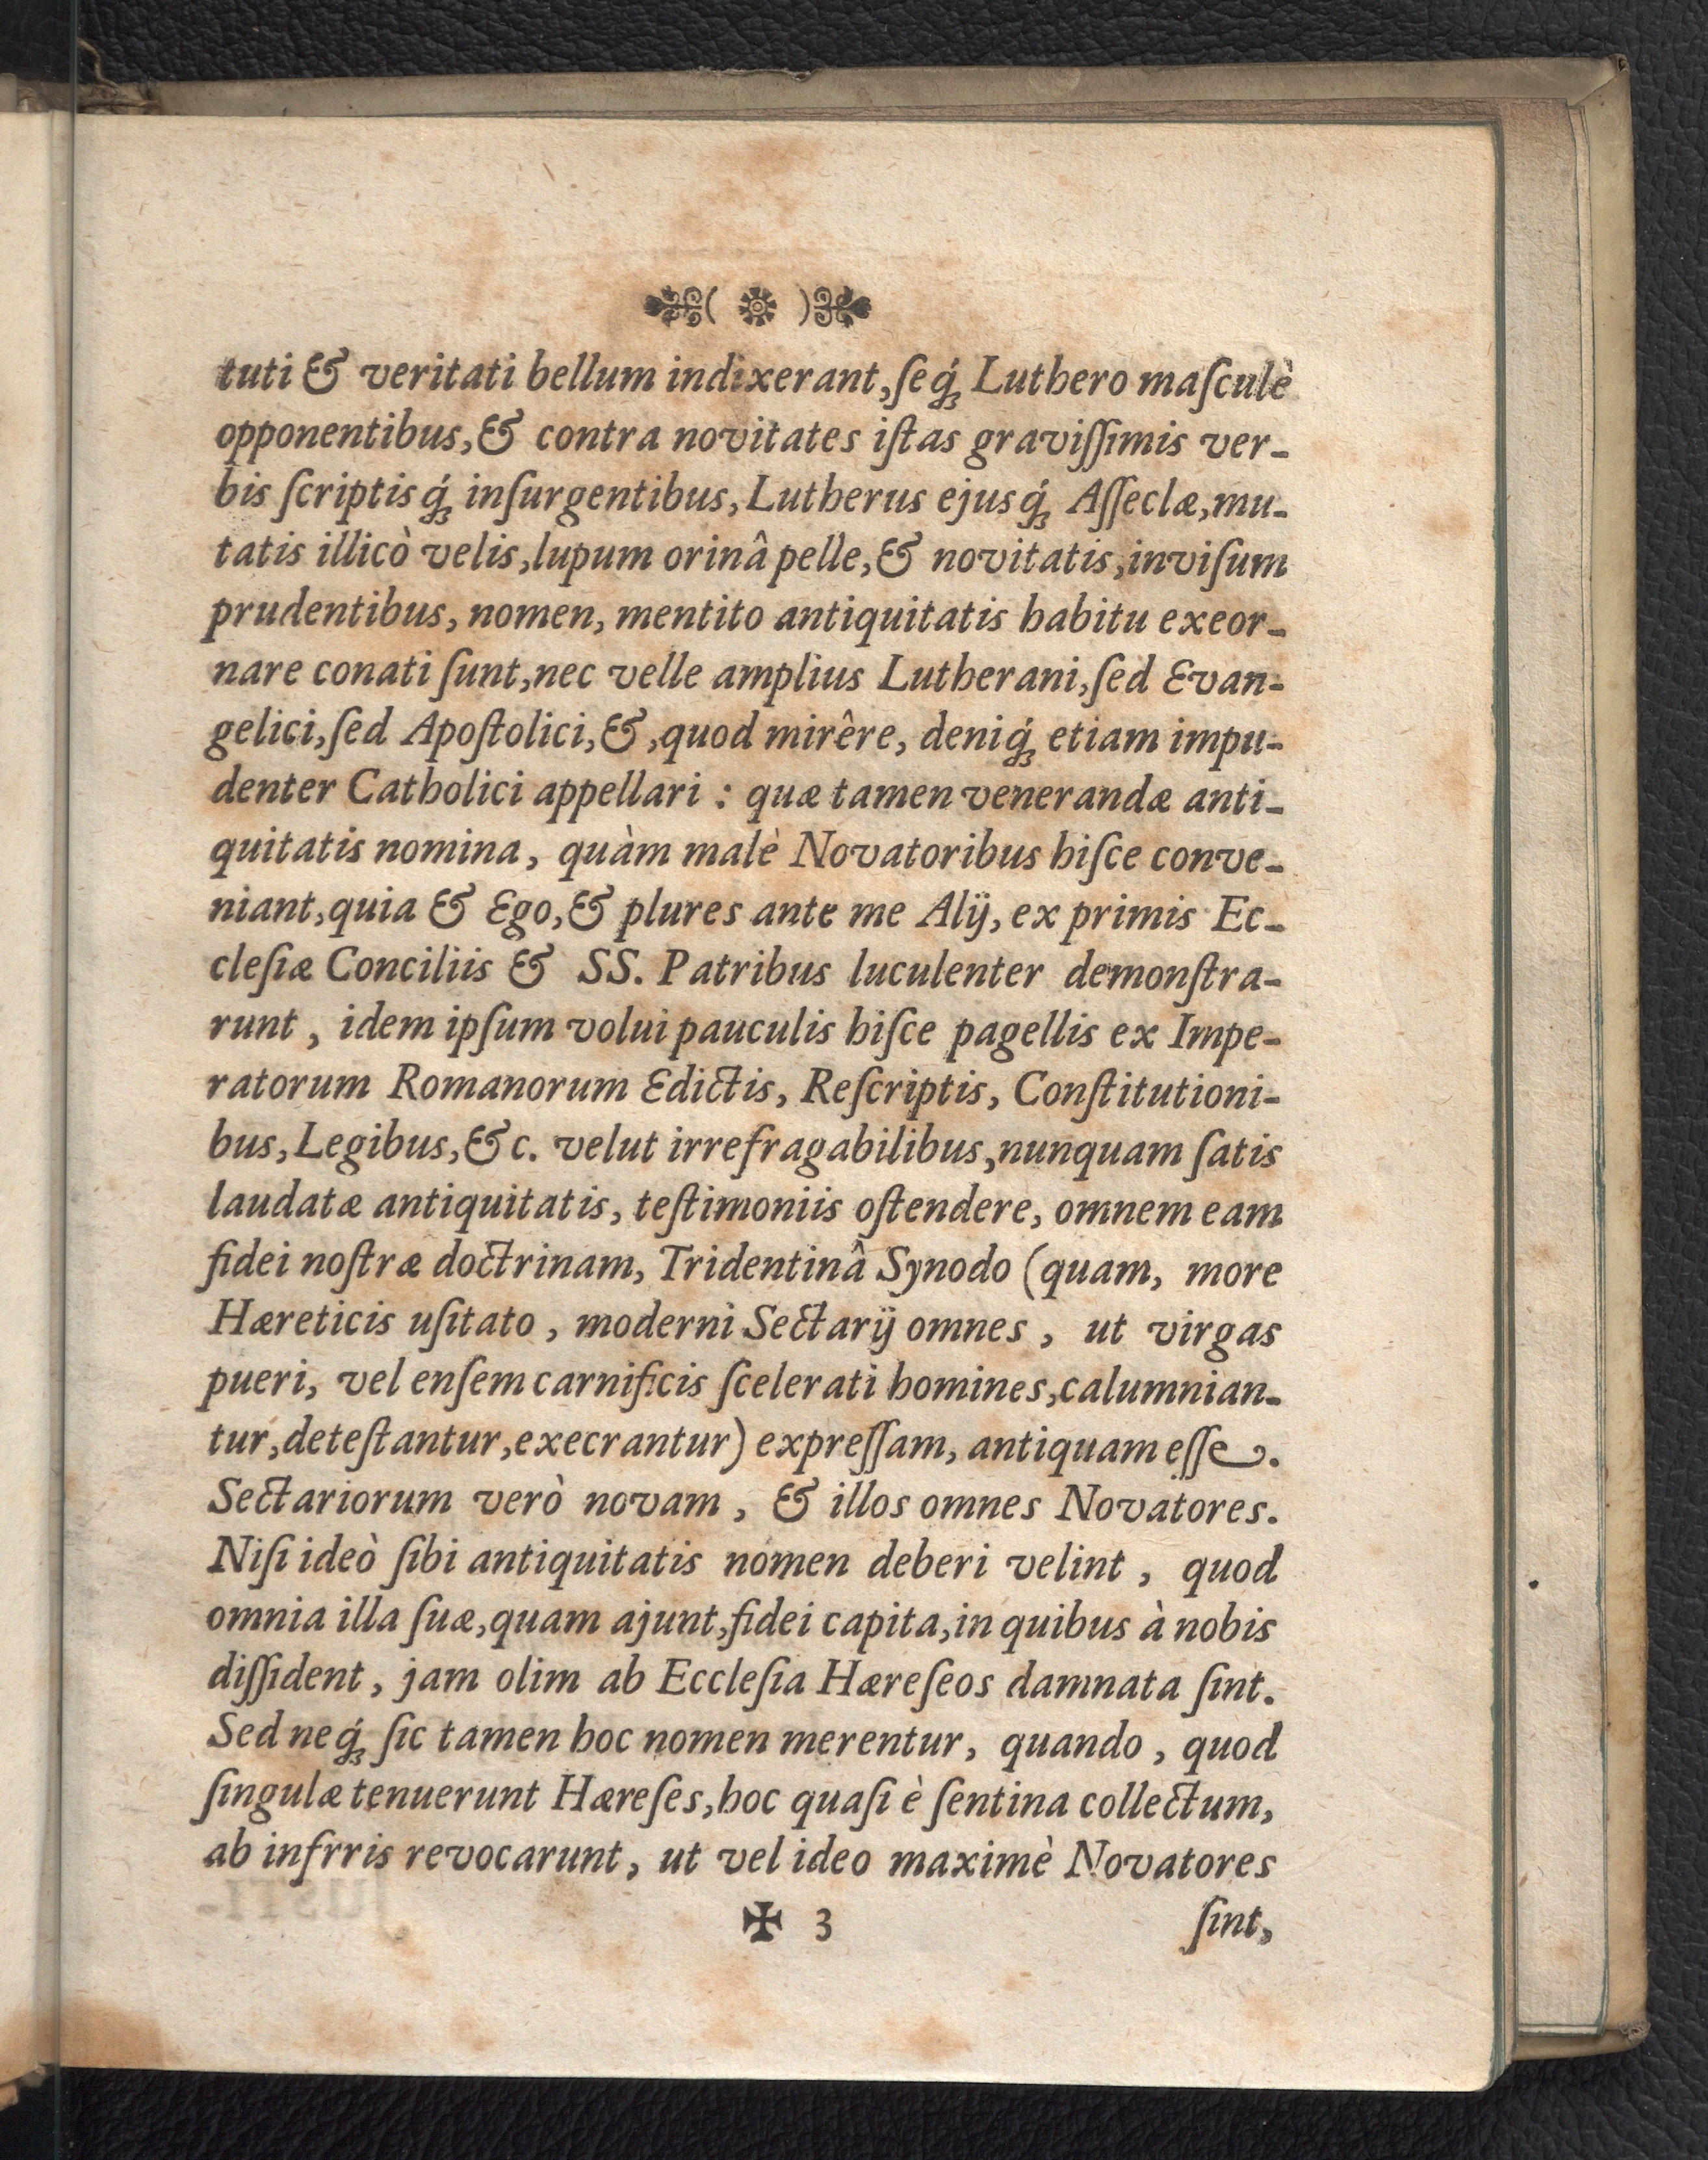 tuti & veritati bellum indixerant, ſeq́ꝫ Luthero maſculè
opponentibus, & contra novitates iſtas graviſſimis ver-
bis ſcriptisq́ꝫ inſurgentibus, Lutherus ejusq́ꝫ Aſſeclæ, mu-
tatis illicò velis, lupum orinâ pelle, & novitatis, inviſum
prudentibus, nomen, mentito antiquitatis habitu exeor-
nare conati ſunt, nec velle amplius Lutherani, ſed Evan-
gelici, ſed Apoſtolici, &, quod mirêre, deniq́ꝫ etiam impu-
denter Catholici appellari : quæ tamen venerandæ anti-
quitatis nomina, quàm malè Novatoribus hiſce conve-
niant, quia & Ego, & plures ante me Alij, ex primis Ec-
cleſiæ Conciliis & SS. Patribus luculenter demonſtra-
runt, idem ipſum volui pauculis hiſce pagellis ex Impe-
ratorum Romanorum Edictis, Reſcriptis, Conſtitutioni-
bus, Legibus, &c. velut irrefragabilibus, nunquam ſatis
laudatæ antiquitatis, teſtimoniis oſtendere, omnem eam
fidei noſtræ doctrinam, Tridentinâ Synodo (quam, more
Hæreticis uſitato, moderni Sectarij omnes, ut virgas
pueri, vel enſem carnificis ſcelerati homines, calumnian-
tur, deteſtantur, execrantur) expreſſam, antiquam eſſe.
Sectariorum verò novam, & illos omnes Novatores.
Niſi ideò ſibi antiquitatis nomen deberi velint, quod
omnia illa ſuæ, quam ajunt, fidei capita, in quibus à nobis
diſſident, jam olim ab Eccleſia Hæreſeos damnata ſint.
Sed neq́ꝫ ſic tamen hoc nomen merentur, quando, quod
ſingulæ tenuerunt Hæreſes, hoc quaſi è ſentina collectum,
ab infrris revocarunt, ut vel ideo maximè Novatores
✠ 3 ſint,